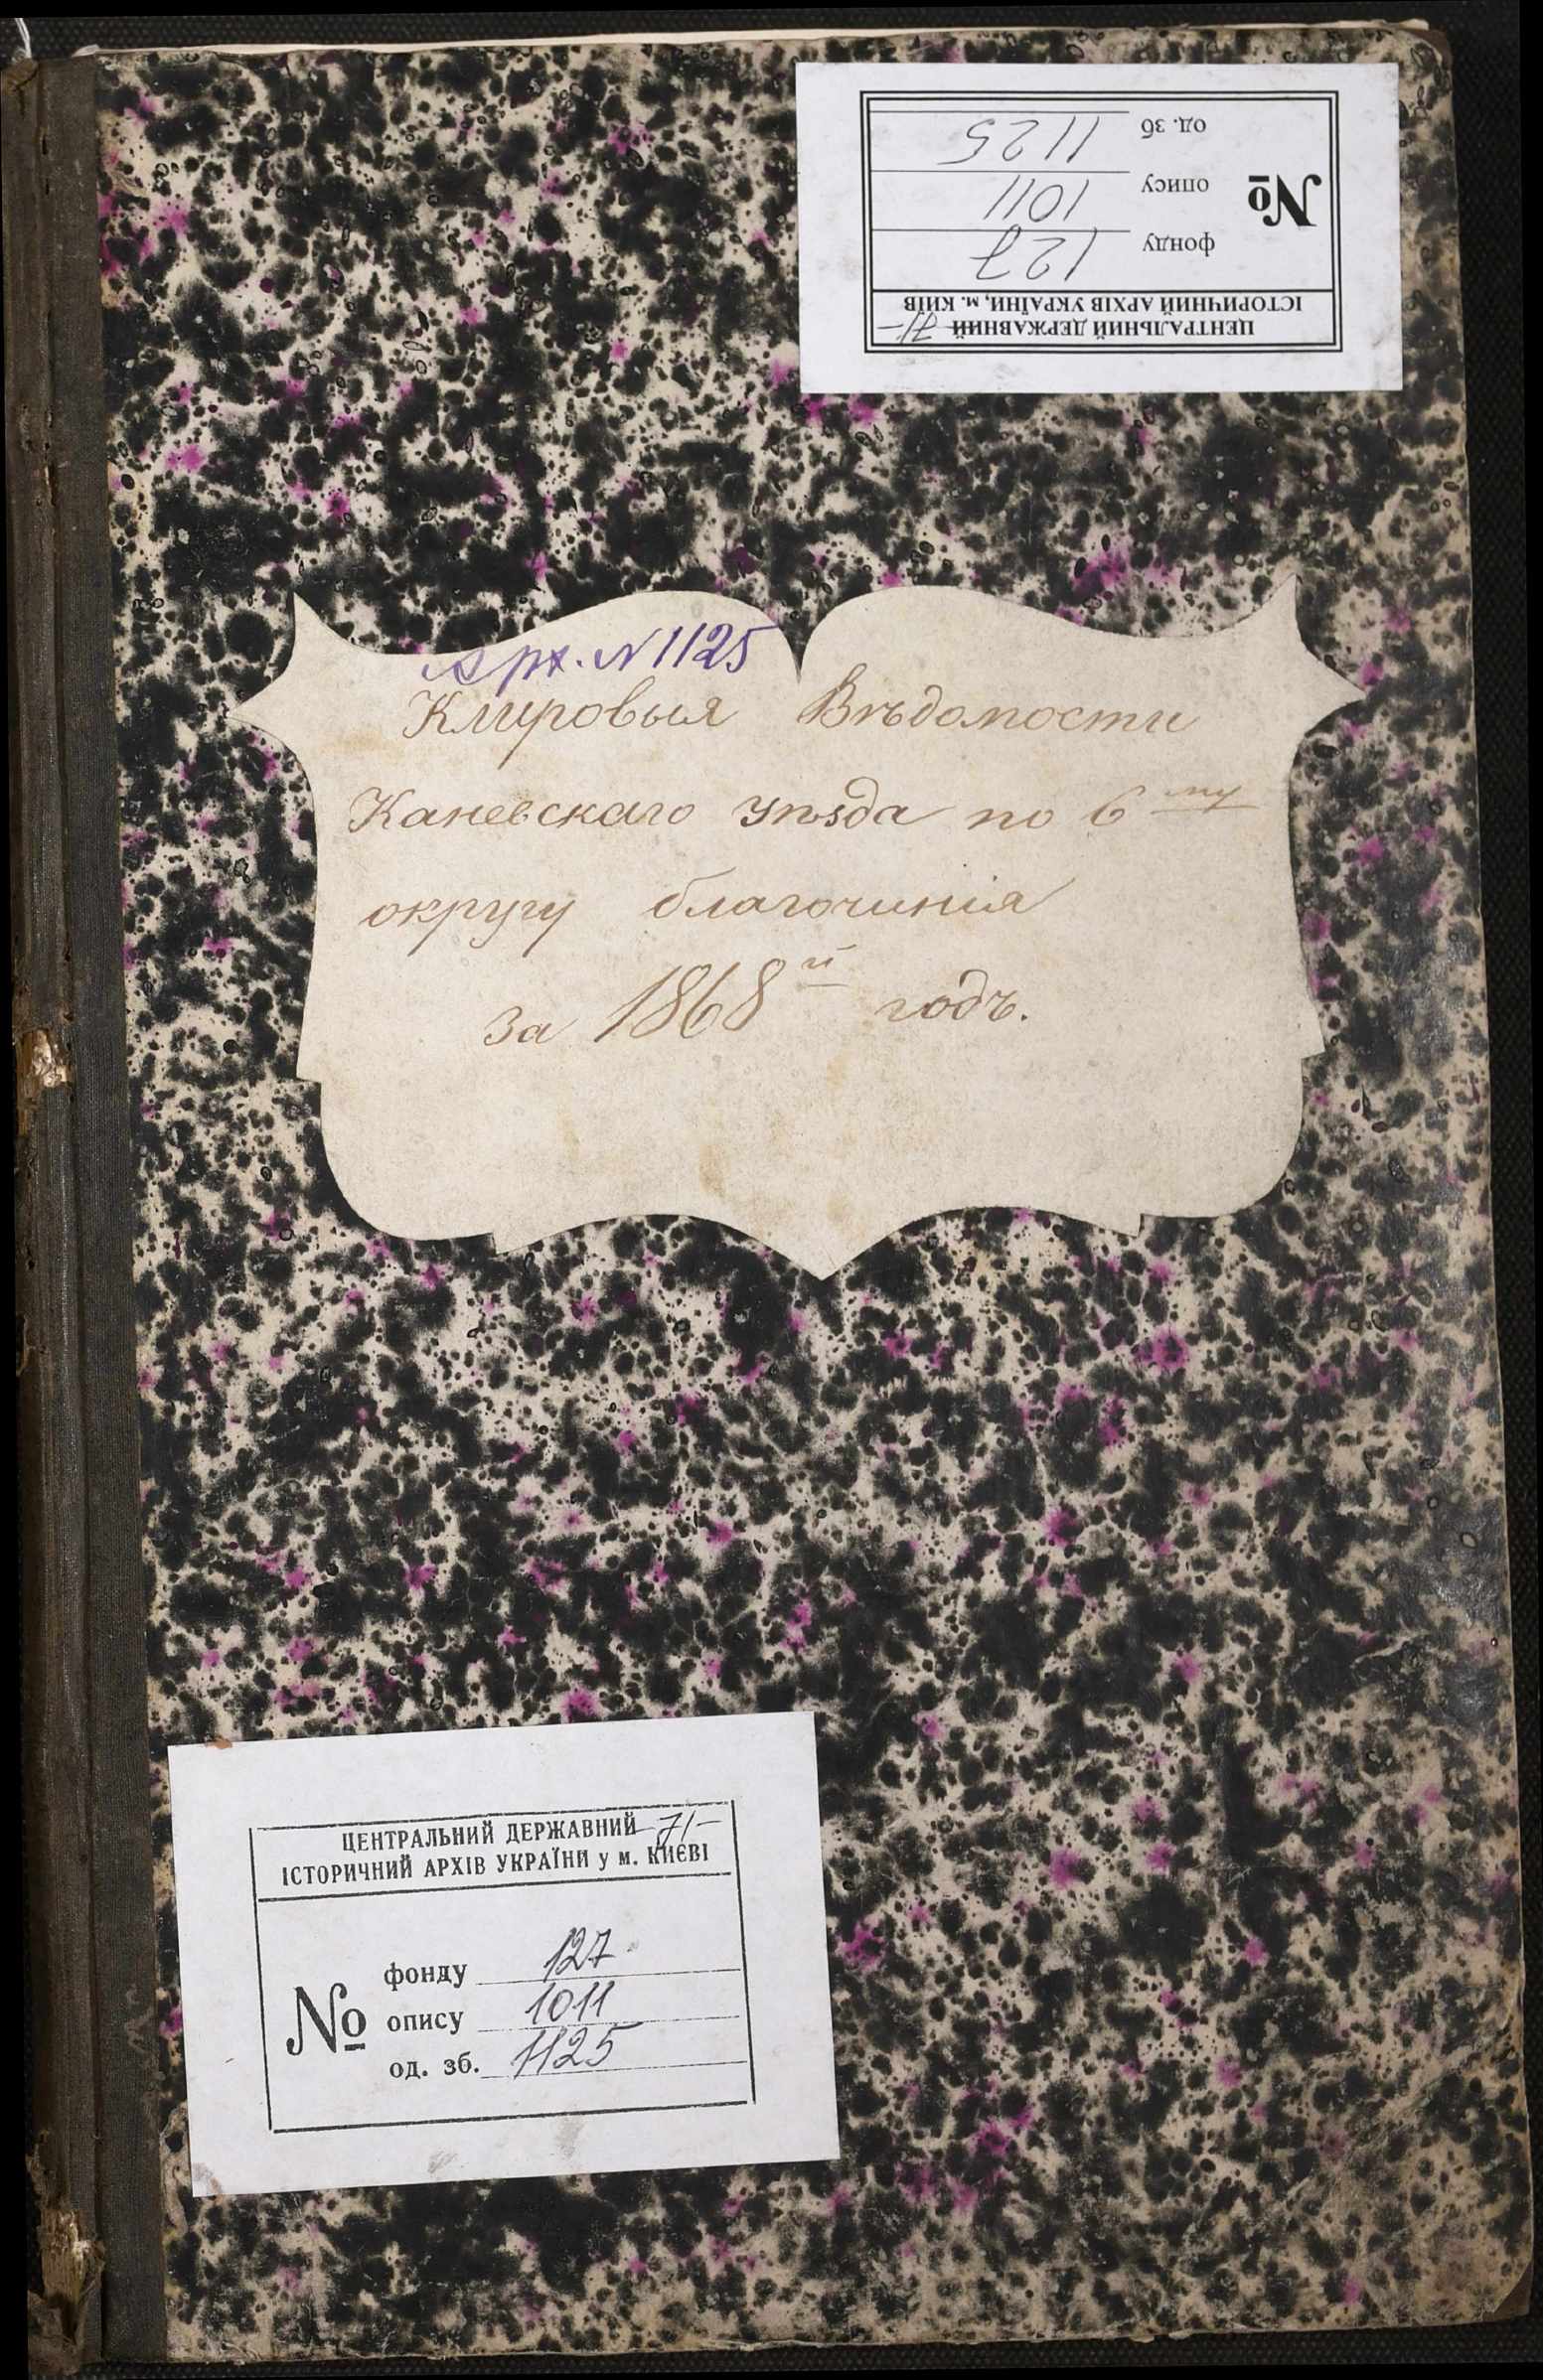 ЦЕНТРАЛЬНИЙ ДЕРЖАВНИЙ -71-
ІСТОРИЧНИЙ АРХІВ УКРАЇНИ, м. КИЇВ
№
фонду 127
опису 1011
од. зб 1125
Арх. N 1125
Клировыя Вѣдомости
Каневскаго уѣзда по 6му
округу благочинія
за 1868й годъ.
ЦЕНТРАЛЬНИЙ ДЕРЖАВНИЙ -71-
ІСТОРИЧНИЙ АРХІВ УКРАЇНИ у м. КИЄВІ
№
фонду 127
опису 1011
од. зб. 1125